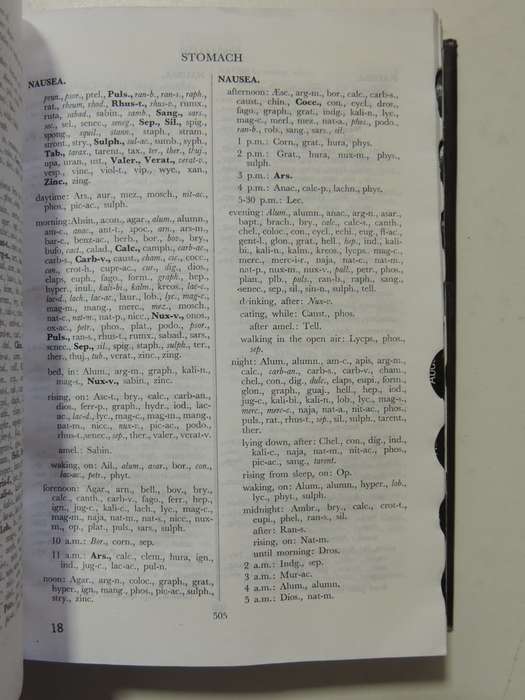 STOMACH
NAUSEA.
prun., psor., ptel., Puls., ran-b., ran-s., raph.,
rat., rheum, rhod., Rhus-t., rhus-v., rumx.,
ruta, sabad., sabin., samb., Sang., sars.,
sec., sel., senec., seneg., Sep., Sil., spig.,
spong., squil., stann., staph., stram.,
stront., stry., Sulph., sul-ac., sumb., syph.,
Tab., tarax., tarent., tax., ter., ther., thuj.,
upa, uran., ust., Valer., Verat., verat-v.,
vesp., vinc., viol-t., vip., wye., xan.,
Zinc., zing.
daytime: Ars., aur., mez., mosch., nit-ac.,
phos., pic-ac., sulph.
morning: Absin., acon., agar., alum., alumn.,
am-c., anac., ant-t., apoc., arn., ars-m.,
bar-c., benz-ac., berb., bor., bov., bry.,
bufo, cact., calad., Calc., camph., carb-ac.,
carb-s., Carb-v., caust., cham., cic., cocc.,
con., crot-h., cupr-ac., cur., dig., dios.,
elaps, euph., fago., form., graph., hep.,
hyper., inul., kali-bi., kalm., kreos., lac-c.,
lac-d., lach., lac-ac., laur., lob., lyc., mag-c.,
mag-m., mang., merc., mez., mosch.,
nat-c., nat-m., nat-p., nicc., Nux-v., onos.,
ox-ac., petr., phos., plat., podo., psor.,
Puls., ran-s., rhus-t., rumx., sabad., sars.,
senec., Sep., sil., spig., staph., sulph., ter.,
ther., thuj., tub., verat., zinc., zing.
bed, in: Alum., arg-m., graph., kali-n.,
mag-s., Nux-v., sabin., zinc.
rising, on: Asc-t., bry., calc., carb-an.,
dios., ferr-p., graph., hydr., iod., lac-
ac., lac-d., lyc., mag-c., mag-m., mang.,
nat-m., nicc., nux-v., pic-ac., podo.,
rhus-t., senec., sep., ther., valer., verat-v.
amel.: Sabin.
waking, on: Ail., alum., asar., bor., con.,
lac-ac., petr., phyt.
forenoon: Agar., arn., bell., bov., bry.,
calc., canth., carb-v., fago., ferr., hep.,
ign., jug-c., kali-c., lach., lyc., mag-c.,
mag-m., naja, nat-m., nat-s., nicc., nux-
m., op., plat., puls., sars., sulph.
10 a.m.: Bor., corn., sep.
11 a.m.: Ars., calc., clem., hura, ign.,
ind., jug-c., lac-ac., pul-n.
noon: Agar., arg-n., coloc., graph., grat.,
hyper., ign., mang., phos., pic-ac., sulph.,
stry., zinc.
NAUSEA.
afternoon: Æsc., arg-m., bor., calc., carb-s.,
caust., chin., Cocc., con., cycl., dros.,
fago., graph., grat., indg., kali-n., lyc.,
mag-c., merl., mez., nat-a., phos., podo.,
ran-b., rob., sang., sars., sil.
1 p.m.: Corn., grat., hura, phys.
2 p.m.: Grat., hura, nux-m., phys.,
sulph.
3 p.m.: Ars.
4 p.m.: Anac., calc-p., lachn., phys.
5-30 p.m.: Lec.
evening: Alum., alumn., anac., arg-n., asar.,
bapt., brach., bry., calc., calc-s., canth.,
chel., coloc., con., cycl., echi., eug., fl-ac.,
gent-l., glon., grat., hell., hep., ind., kali-
bi., kali-n., kalm., kreos., lycps., mag-c.,
merc., merc-i-r., naja, nat-c., nat-m.,
nat-p., nux-m., nux-v., pall., petr., phos.,
plan., plb., puls., ran-b., raph., sang.,
senec., sep., sil., sin-n., sulph., tell.
drinking, after: Nux-v.
eating, while: Caust., phos.
after amel.: Tell.
walking in the open air: Lycps., phos.,
sep.
night: Alum., alumn., am-c., apis, arg-m.,
calc., carb-an., carb-s., carb-v., cham.,
chel., con., dig., dulc., elaps, eupi., form.,
glon., graph., guaj., hell., hep., iod.,
jug-c., kali-bi., kali-n., lob., lyc., mag-s.,
merc., merc-c., naja, nat-a., nit-ac., phos.,
puls., rat., rhus-t., sep., sil., sulph., tarent.,
ther.
lying down, after: Chel., con., dig., ind.,
kali-c., naja, nat-m., nit-ac., phos.,
pic-ac., sang., tarent.
rising from sleep, on: Op.
waking, on: Alum., alumn., hyper., lob.,
lyc., phyt., sulph.
midnight: Ambr., bry., calc., crot-t.,
eupi., phel., ran-s., sil.
after: Ran-s.
rising, on: Nat-m.
until morning: Dros.
2 a.m.: Indg., sep.
3 a.m.: Mur-ac.
4 a.m.: Alum., alumn.
5 a.m.: Dios., nat-m.
505
18